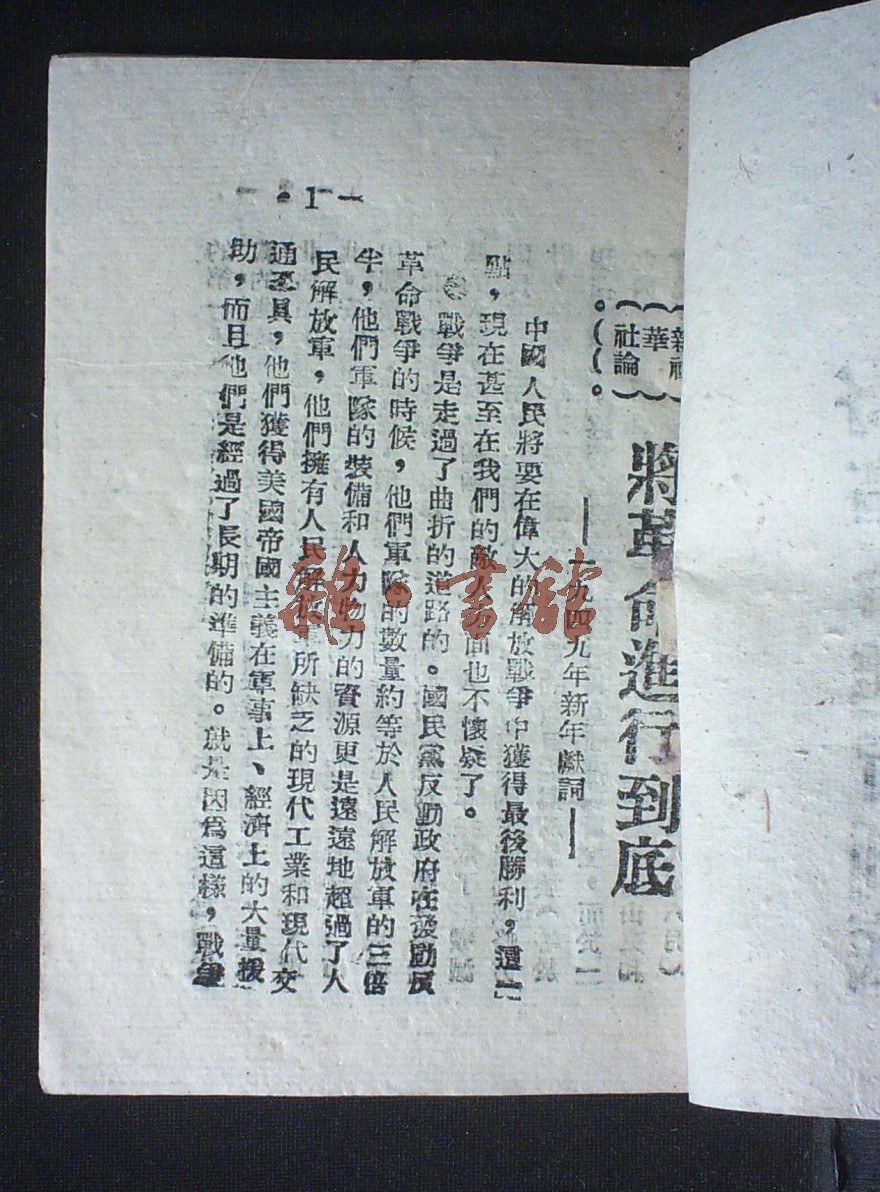 新華社
社論
將革命進行到底
——一九四九年新年獻詞——
中國人民將要在偉大的解放戰爭中獲得最後勝利，這一
點，現在甚至在我們的敵人方面也不懷疑了。
戰爭是走過了曲折的道路的。國民黨反動政府在發動反
革命戰爭的時候，他們軍隊的數量約等於人民解放軍的三倍
半，他們軍隊的裝備和人力物力的資源更是遠遠地超過了人
民解放軍，他們擁有人民解放軍所缺乏的現代工業和現代交
通工具，他們獲得美國帝國主義在軍事上、經濟上的大量援
助，而且他們是經過了長期的準備的。就是因爲這樣，戰爭
—·1—
雜·書館